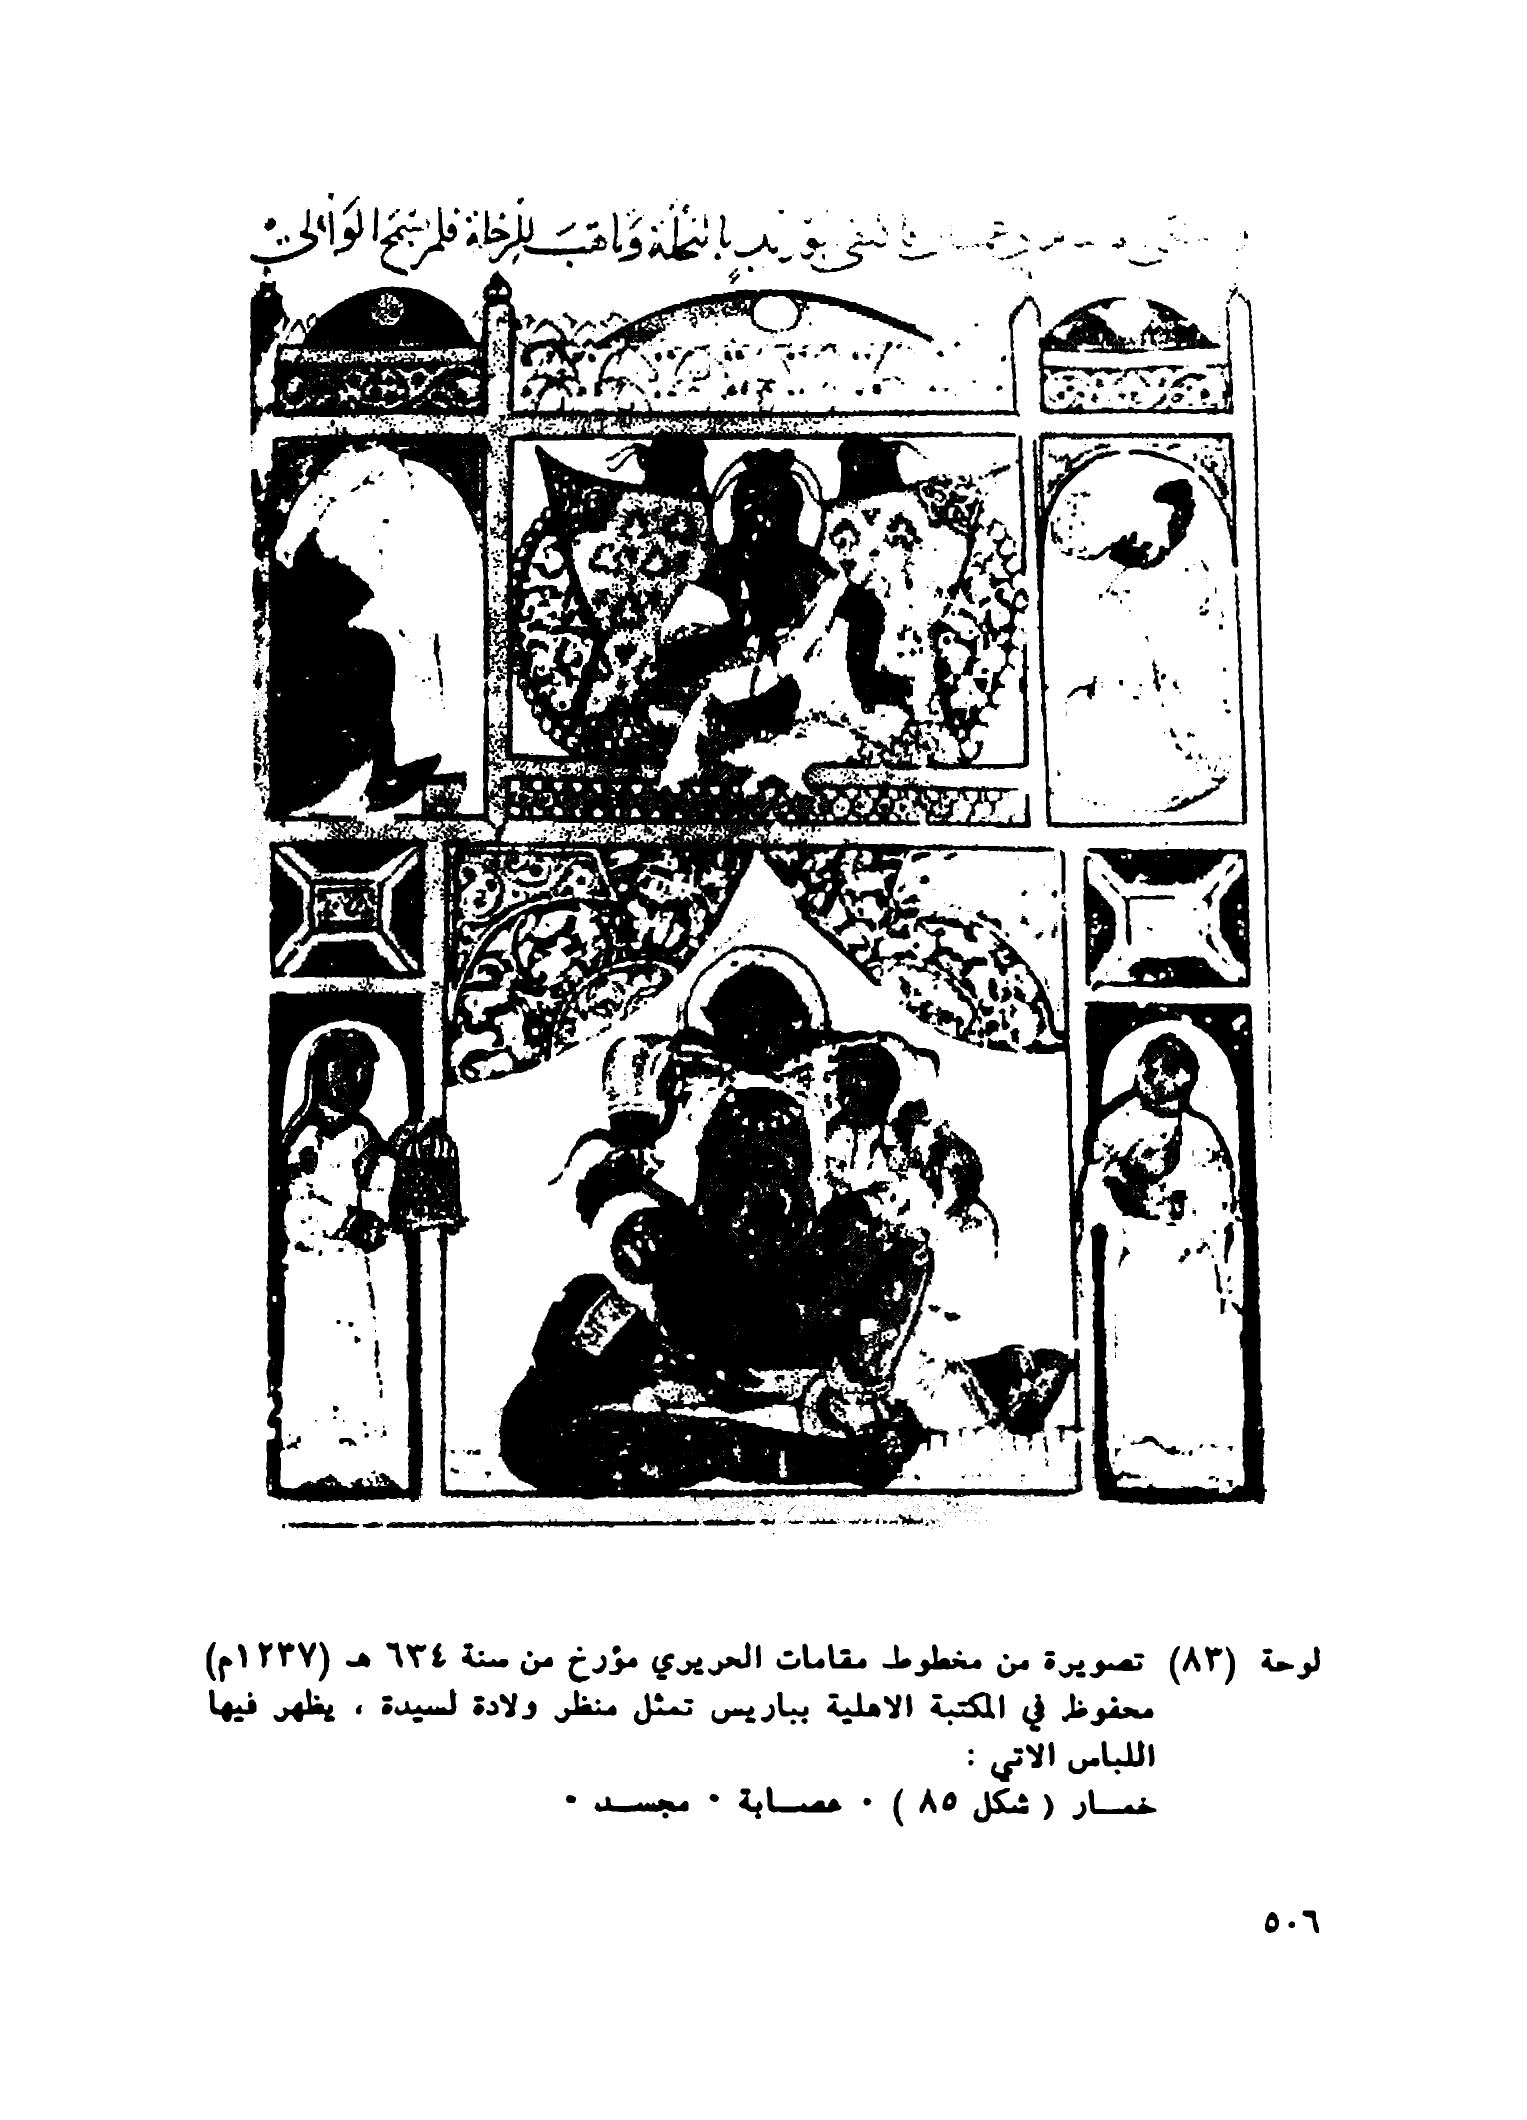 بالنحلة وناهب للرحلة فلم يسمح الوالي
لوحة (٨٣) تصويرة من مخطوط مقامات الحريري مؤرخ من سنة ٦٣٤ هـ (١٢٣٧م)
محفوظ في المكتبة الاهلية بباريس تمثل منظر ولادة لسيدة ، يظهر فيها
اللباس الاتي :
خمـــار ( شكل ٨٥ ) ٠ عصـــابة ٠ مجســـد ٠
٥٠٦